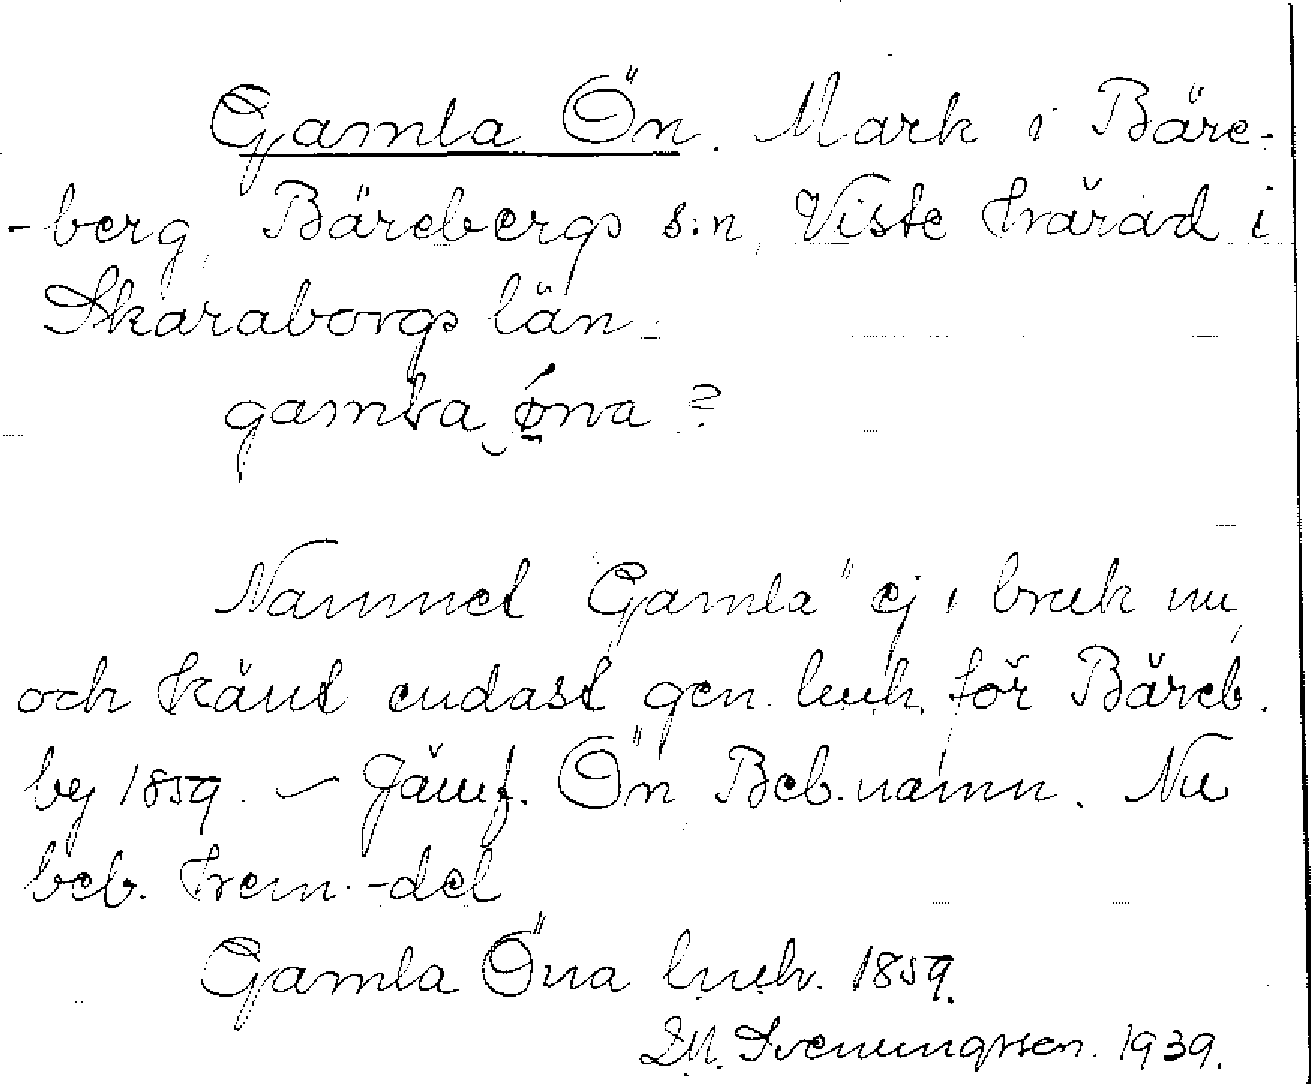 Gamla Ön. Mark i Bäre-
-berg, Bärebergs s:n, Viste härad i
Skaraborgs län.
gamla öna ?
Namnet "Gamla" ej i bruk nu,
och känt endast gen. lmh. för Bäreb.
by 1859. – Jämf. Ön Beb.namn. Nu
beb. hem.-del
Gamla Öna lmh. 1859.
Svenungsson. 1939.